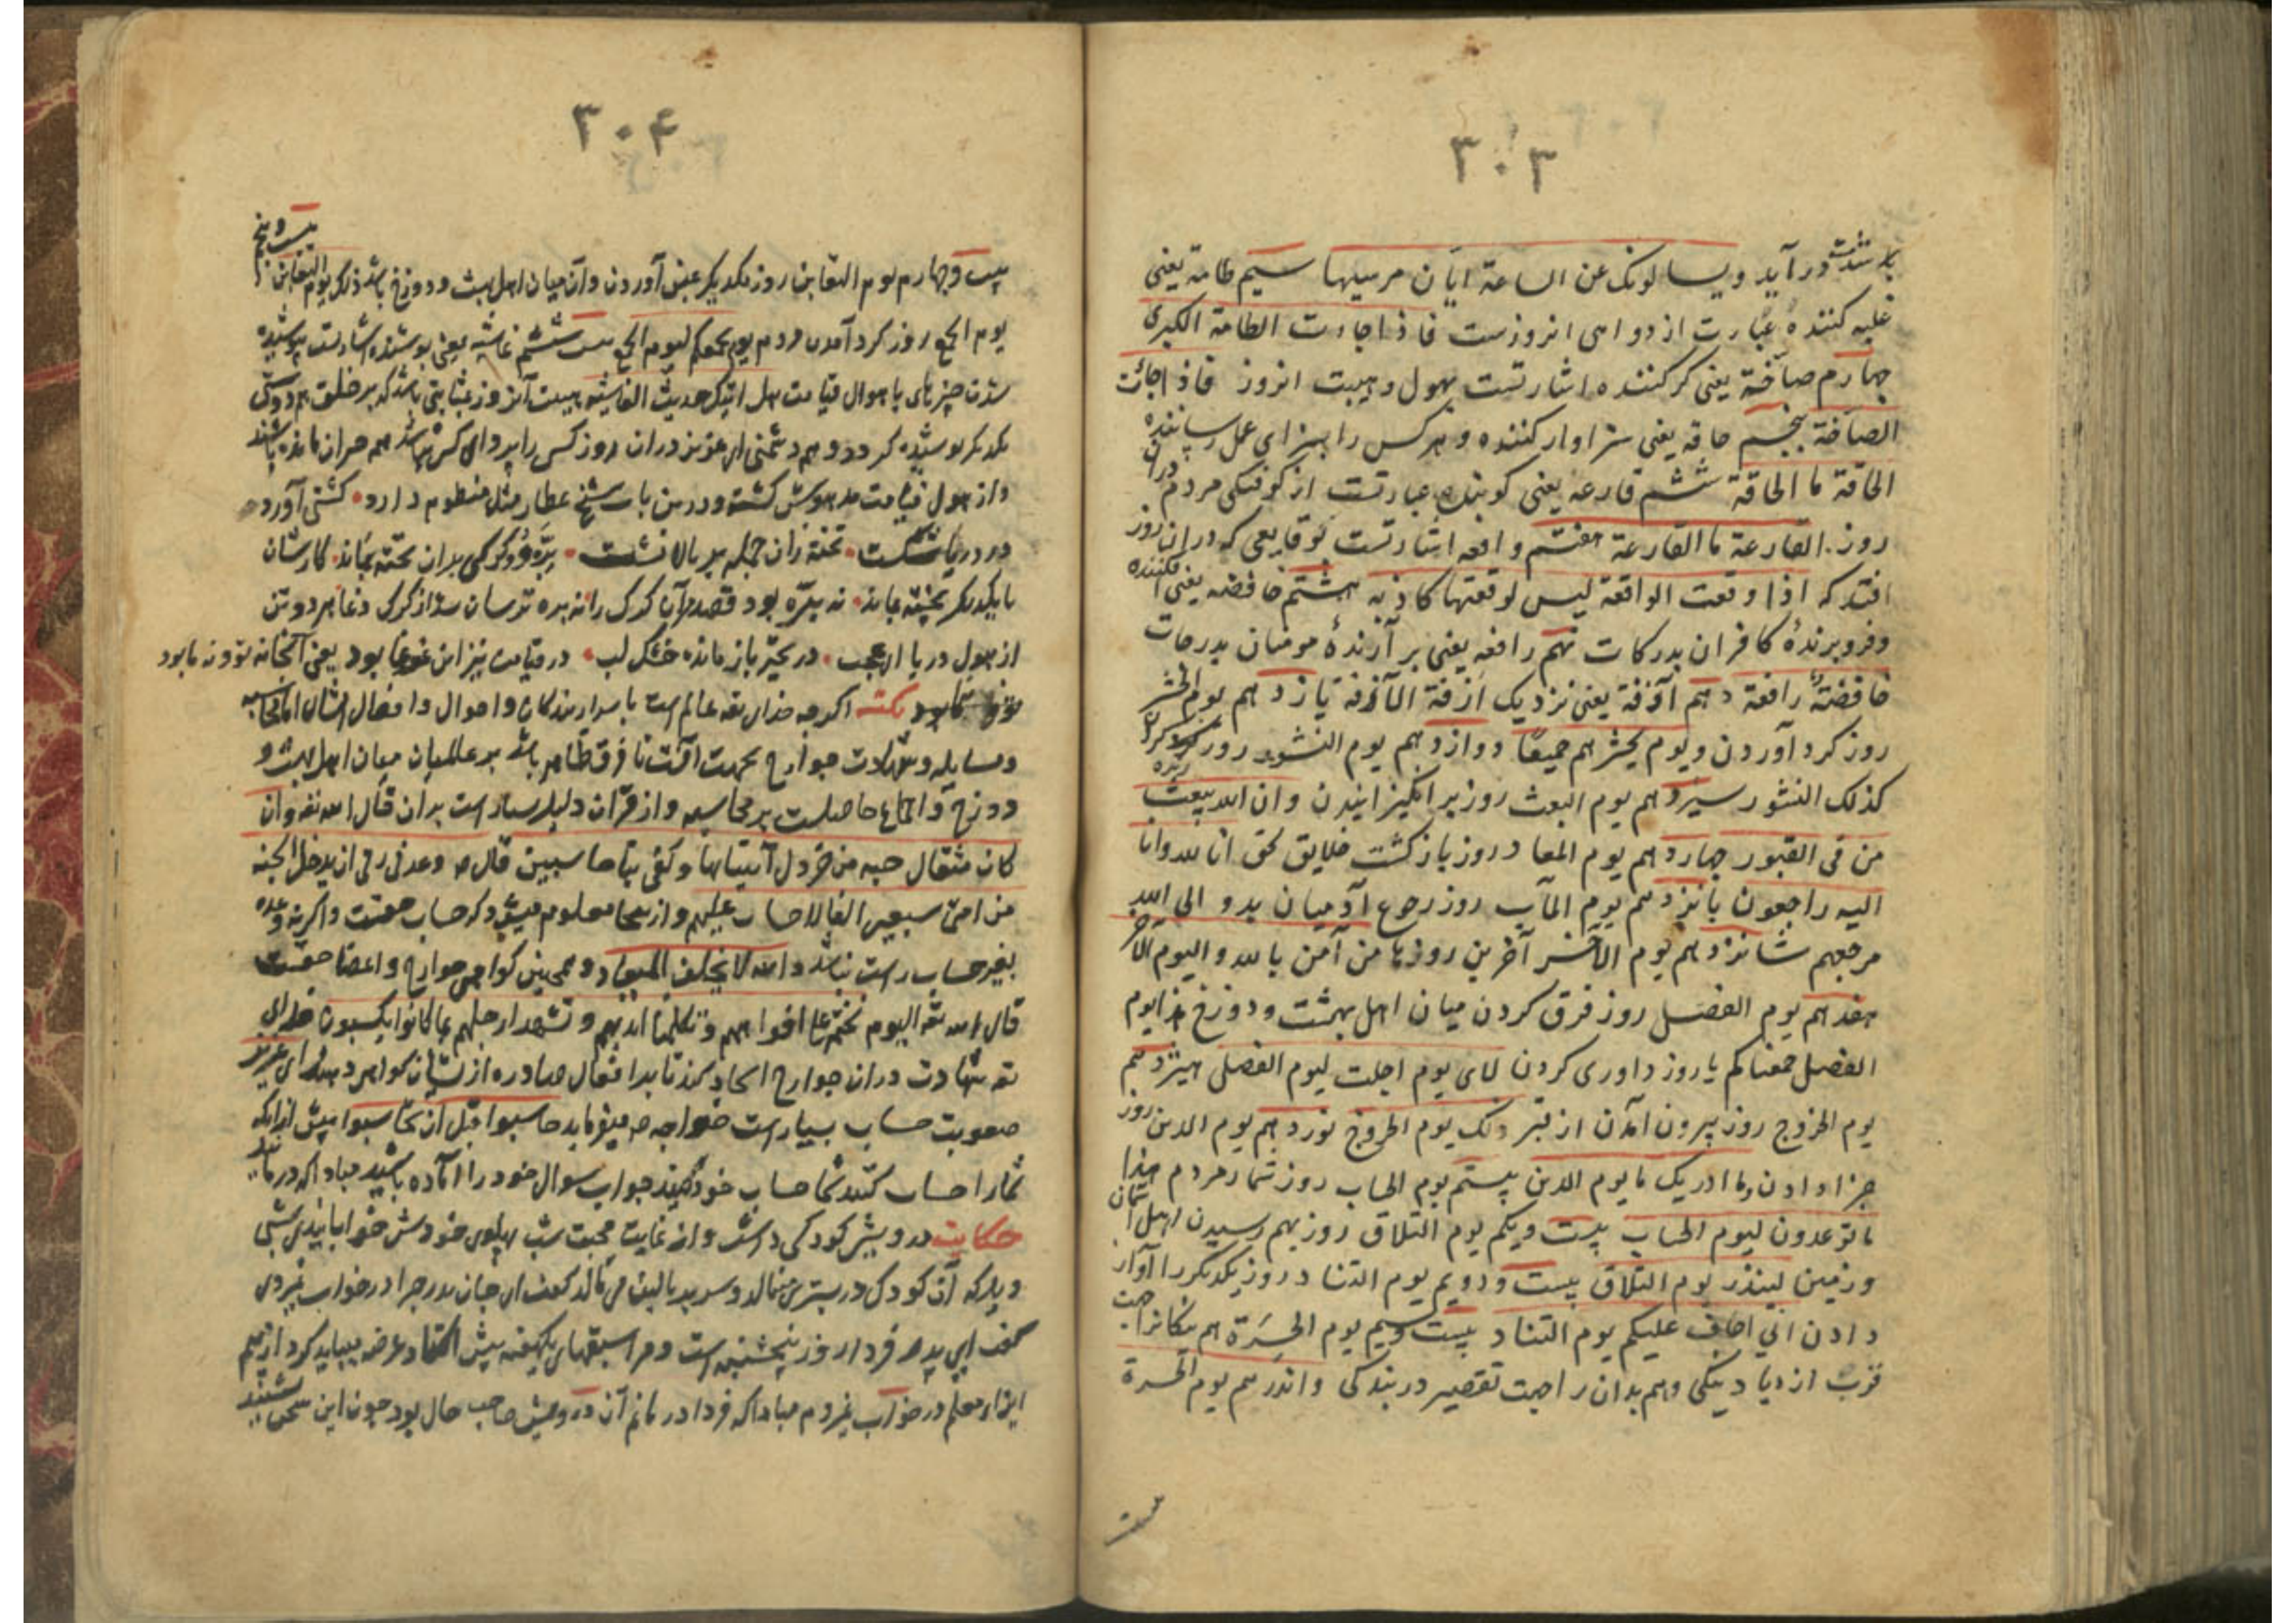 ۳۰۳
بد شدت درآید ویسالونک عن الساعة ایان مرسیها سیم طامة یعنی
غلبه کننده عبارت از دواهی انروزست فاذا جاءت الطامة الکبری
چهارم صاخة یعنی کر کننده اشارتست بهول و هیبت انروز فاذا جائت
الصاخة پنجم حاقه یعنی سزاوار کننده و هرکس را بسزای عمل رساننده
الحاقة ما الحاقة ششم قارعه یعنی کوبنده عبارتست از کوفتکی مردم دران
روز القارعة ما القارعة هفتم واقعه اشارتست بوقایعی که دران روز
افتد که اذا وقعت الواقعة لیس لوقعتها کاذبه هشتم خافضه یعنی افکننده
و فرو برندهٔ کافران بدرکات نهم رافعه یعنی بر آرندهٔ مومنان بدرجات
خافضة رافعة دهم آزفة یعنی نزدیک ازفة الآزفة یازدهم یوم الحشر
روز کرد آوردن و یوم یحشرهم جمیعا دوازدهم یوم النشور روز
کذلک النشور سیزدهم یوم البعث روز بر انکیزانیدن وان الله یبعث
من فی القبور چهاردهم یوم المعاد روز بازکشت خلایق بحق انا لله وانا
الیه راجعون پانزدهم یوم المآب روز رجوع آدمیان بدو الی الله
مرجعهم شانزدهم یوم الآخر آخرین روزها من آمن بالله والیوم الآخر
هفدهم یوم الفصل روز فرق کردن میان اهل بهشت و دوزخ هذا یوم
الفصل جمعناکم یا روز داوری کردن لای یوم اجلت لیوم الفصل هیزدهم
یوم الخروج روز بیرون آمدن از قبر ذلک یوم الخروج نوزدهم یوم الدین روز
جزا دادن وما ادریک ما یوم الدین بیستم یوم الحساب روز شمار مردم هذا
ما توعدون لیوم الحساب بیست و یکم یوم التلاق روز بهم رسیدن اهل آسمان
و زمین لینذر یوم التلاق بیست و دویم یوم التناد روز یکدیکر را آواز
دادن انی اخاف علیکم یوم التناد بیست و سیم یوم الحسرة هم نیکانرا جهت
قرب ازدیاد نیکی و هم بدان را جهت تقصیر در بندکی وانذرهم یوم الحسرة
بیست
۳۰۴
بیست و چهارم یوم التغابن روز یکدیکر غبن آوردن وآن میان اهل بهشت و دوزخ باشد ذلک یوم التغابن بیست و پنجم
یوم الجمع روز کرد آمدن مردم یوم یجمعکم لیوم الجمع بیست ششم غاشیه یعنی پوشنده اشارتست پوشیده
شدن چیزهای باهوال قیامت هل اتیک حدیث الغاشیه هیبت آنروز بمثابتی باشد که بر خلق هم دوستی
یکدیکر پوشیده کردد و هم دشمنی ای عزیز دران روز کس را پروای کس نباشد همه حیران مانده باشند
و از هول قیامت مدهوش کشته و درین باب شیخ عطار مثل منظوم دارد کشتی آورد
در دریا شکست تخته زان جمله بر بالا نشست بره و کرکی بران تخته بماند کارشان
بایکدیکر پخته بماند نه بره بود
از هول دریا ای عجب در تحیر باز مانده خشک لب در قیامت نیز این غوغا بود یعنی آنجا نه تو و نه ما بود
نکته اکرچه خدای تعه عالم است باسرار بندکان و احوال و افعال ایشان اما محاسبه
و مسایله و شهادت جوارح بجهت آنست تا فرق ظاهر باشد بر عالمیان میان اهل بهشت و
دوزخ و اجماع حاصلست بر محاسبه و از قرآن دلیل بسیار است بدان قال الله تعه وان
کان مثقال حبه من خردل آتینا بها وکفی بنا حاسبین قال ص وعدنی ربی ان یدخل الجنه
من امتی سبعین الفا لا حساب علیهم و از اینجا معلوم میشود که حساب حقست واکرنه وعده
بغیر حساب راست نباشد والله لا یخلف المیعاد و همچنین کواهی جوارح و اعضا حقست
قال الله تعه الیوم نختم علی افواههم وتکلمنا ایدیهم وتشهد ارجلهم بما کانوا یکسبون خدای
تعه شهادت دران جوارح ایجاد کند تا بدافعال صادره از ایشان کواهی دهند ای عزیز
صعوبت حساب بسیار است خواجه ص میفرماید حاسبوا قبل ان تحاسبوا پیش ازانکه
شمارا حساب کنند شما حساب خود کنید جواب سوال خود را آماده باشید مبادا که درمانید
حکایت درویشی کودکی داشت و از غایت محبت شب پهلوی خودش خوابانیدی شبی
دید که آن کودک در بستر می نالد و سر بر بالین می مالد کفت ای جان پدر چرا در خواب نمیروی
کفت ای پدر فردا روز پنجشنبه است و مرا سبقهای یکهفته پیش استاد عرضه میباید کرد از بیم
ایذاء معلم در خواب نمیروم مبادا که فردا درمانم آن درویش صاحب حال بود چون این سخن شنید